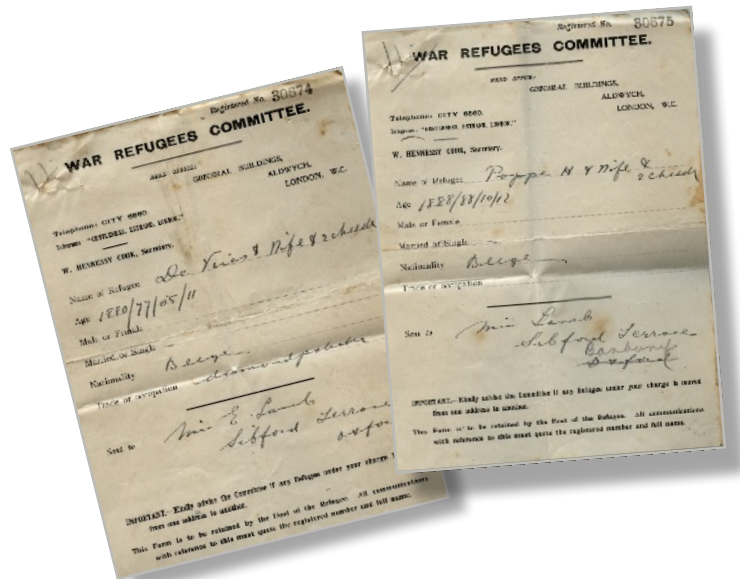 Registered No. 30674
WAR REFUGEES COMMITTEE.
HEAD OFFICE:
GENERAL BUILDINGS,
ALDWYCH,
LONDON, W.C.
Telephone: CITY 6660.
Telegrams: "GENTLENESS, ESTRAND, LONDON."
W. HENNESSY COOK, Secretary.
Name of Refugee De Vries & Wife & 2 children
Age 1880/77/05/11
Male or Female
Married or Single
Nationality Belge
Trade or occupation diamond polisher
Sent to Miss E. Lamb
Sibford Terrace
Oxford
IMPORTANT.—Kindly advise the Committee if any Refugee under your charge
from one address to another.
This Form is to be retained by the Host of the Refugee. All communications
with reference to this must quote the registered number and full name.
Registered No. 30675
WAR REFUGEES COMMITTEE.
HEAD OFFICE:
GENERAL BUILDINGS,
ALDWYCH,
LONDON, W.C.
Telephone: CITY 6660.
Telegrams: "GENTLENESS, ESTRAND, LONDON."
W. HENNESSY COOK, Secretary.
Name of Refugee Poppe H & Wife &
2 children
Age 1888/88/10/12
Male or Female
Married or Single
Nationality Belge
Trade or occupation
Sent to Miss Lamb
Sibford Terrace
Banbury
Oxford
IMPORTANT.—Kindly advise the Committee if any Refugee under your charge is moved
from one address to another.
This Form is to be retained by the Host of the Refugee. All communications
with reference to this must quote the registered number and full name.